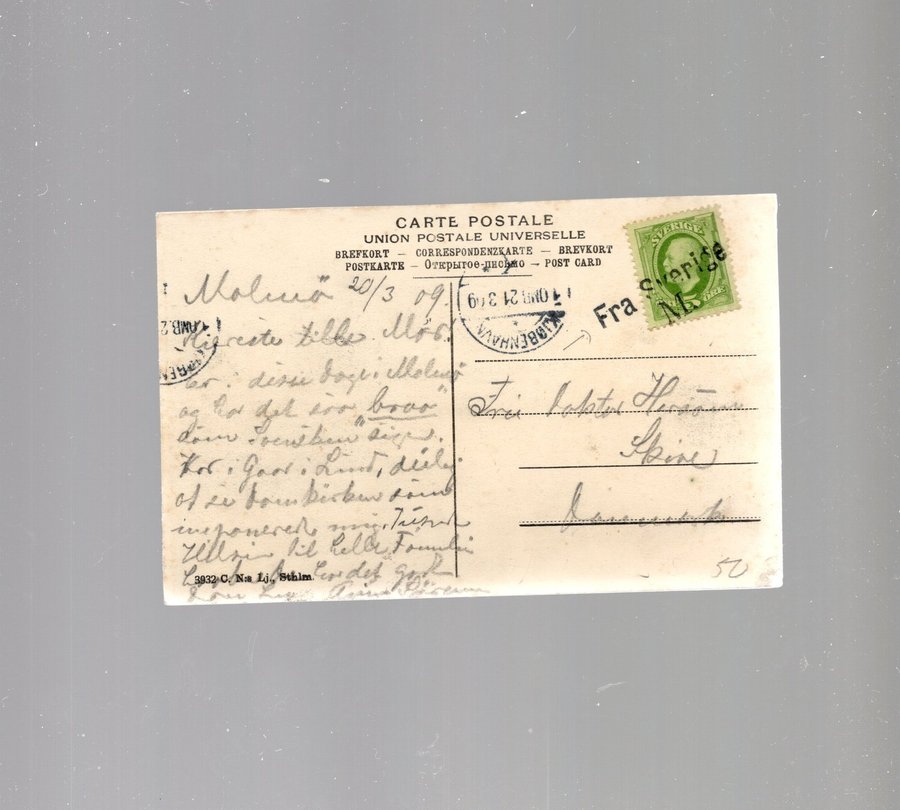 CARTE POSTALE
UNION POSTALE UNIVERSELLE
BREFKORT — CORRESPONDENZKARTE — BREVKORT
POSTKARTE — Открытое-письмо — POST CARD
SVERIGE
ÖRE
Fra Sverige
M.
KJØBENHAVN
1 OMB. 21 3 09
Malmö 20/3 09.
Kiæreste lille Mor.
Er i disse Dage i Malmö
og har det saa "braa"
som Svensken siger.
Var i Gaar i Lund, deilig
at se Domkirken som
imponerede mig. Tusind
til hele Familien
har det godt
3932 C. N:s Lj., Sthlm.
Fru Doktor
Skive
Danmark
50